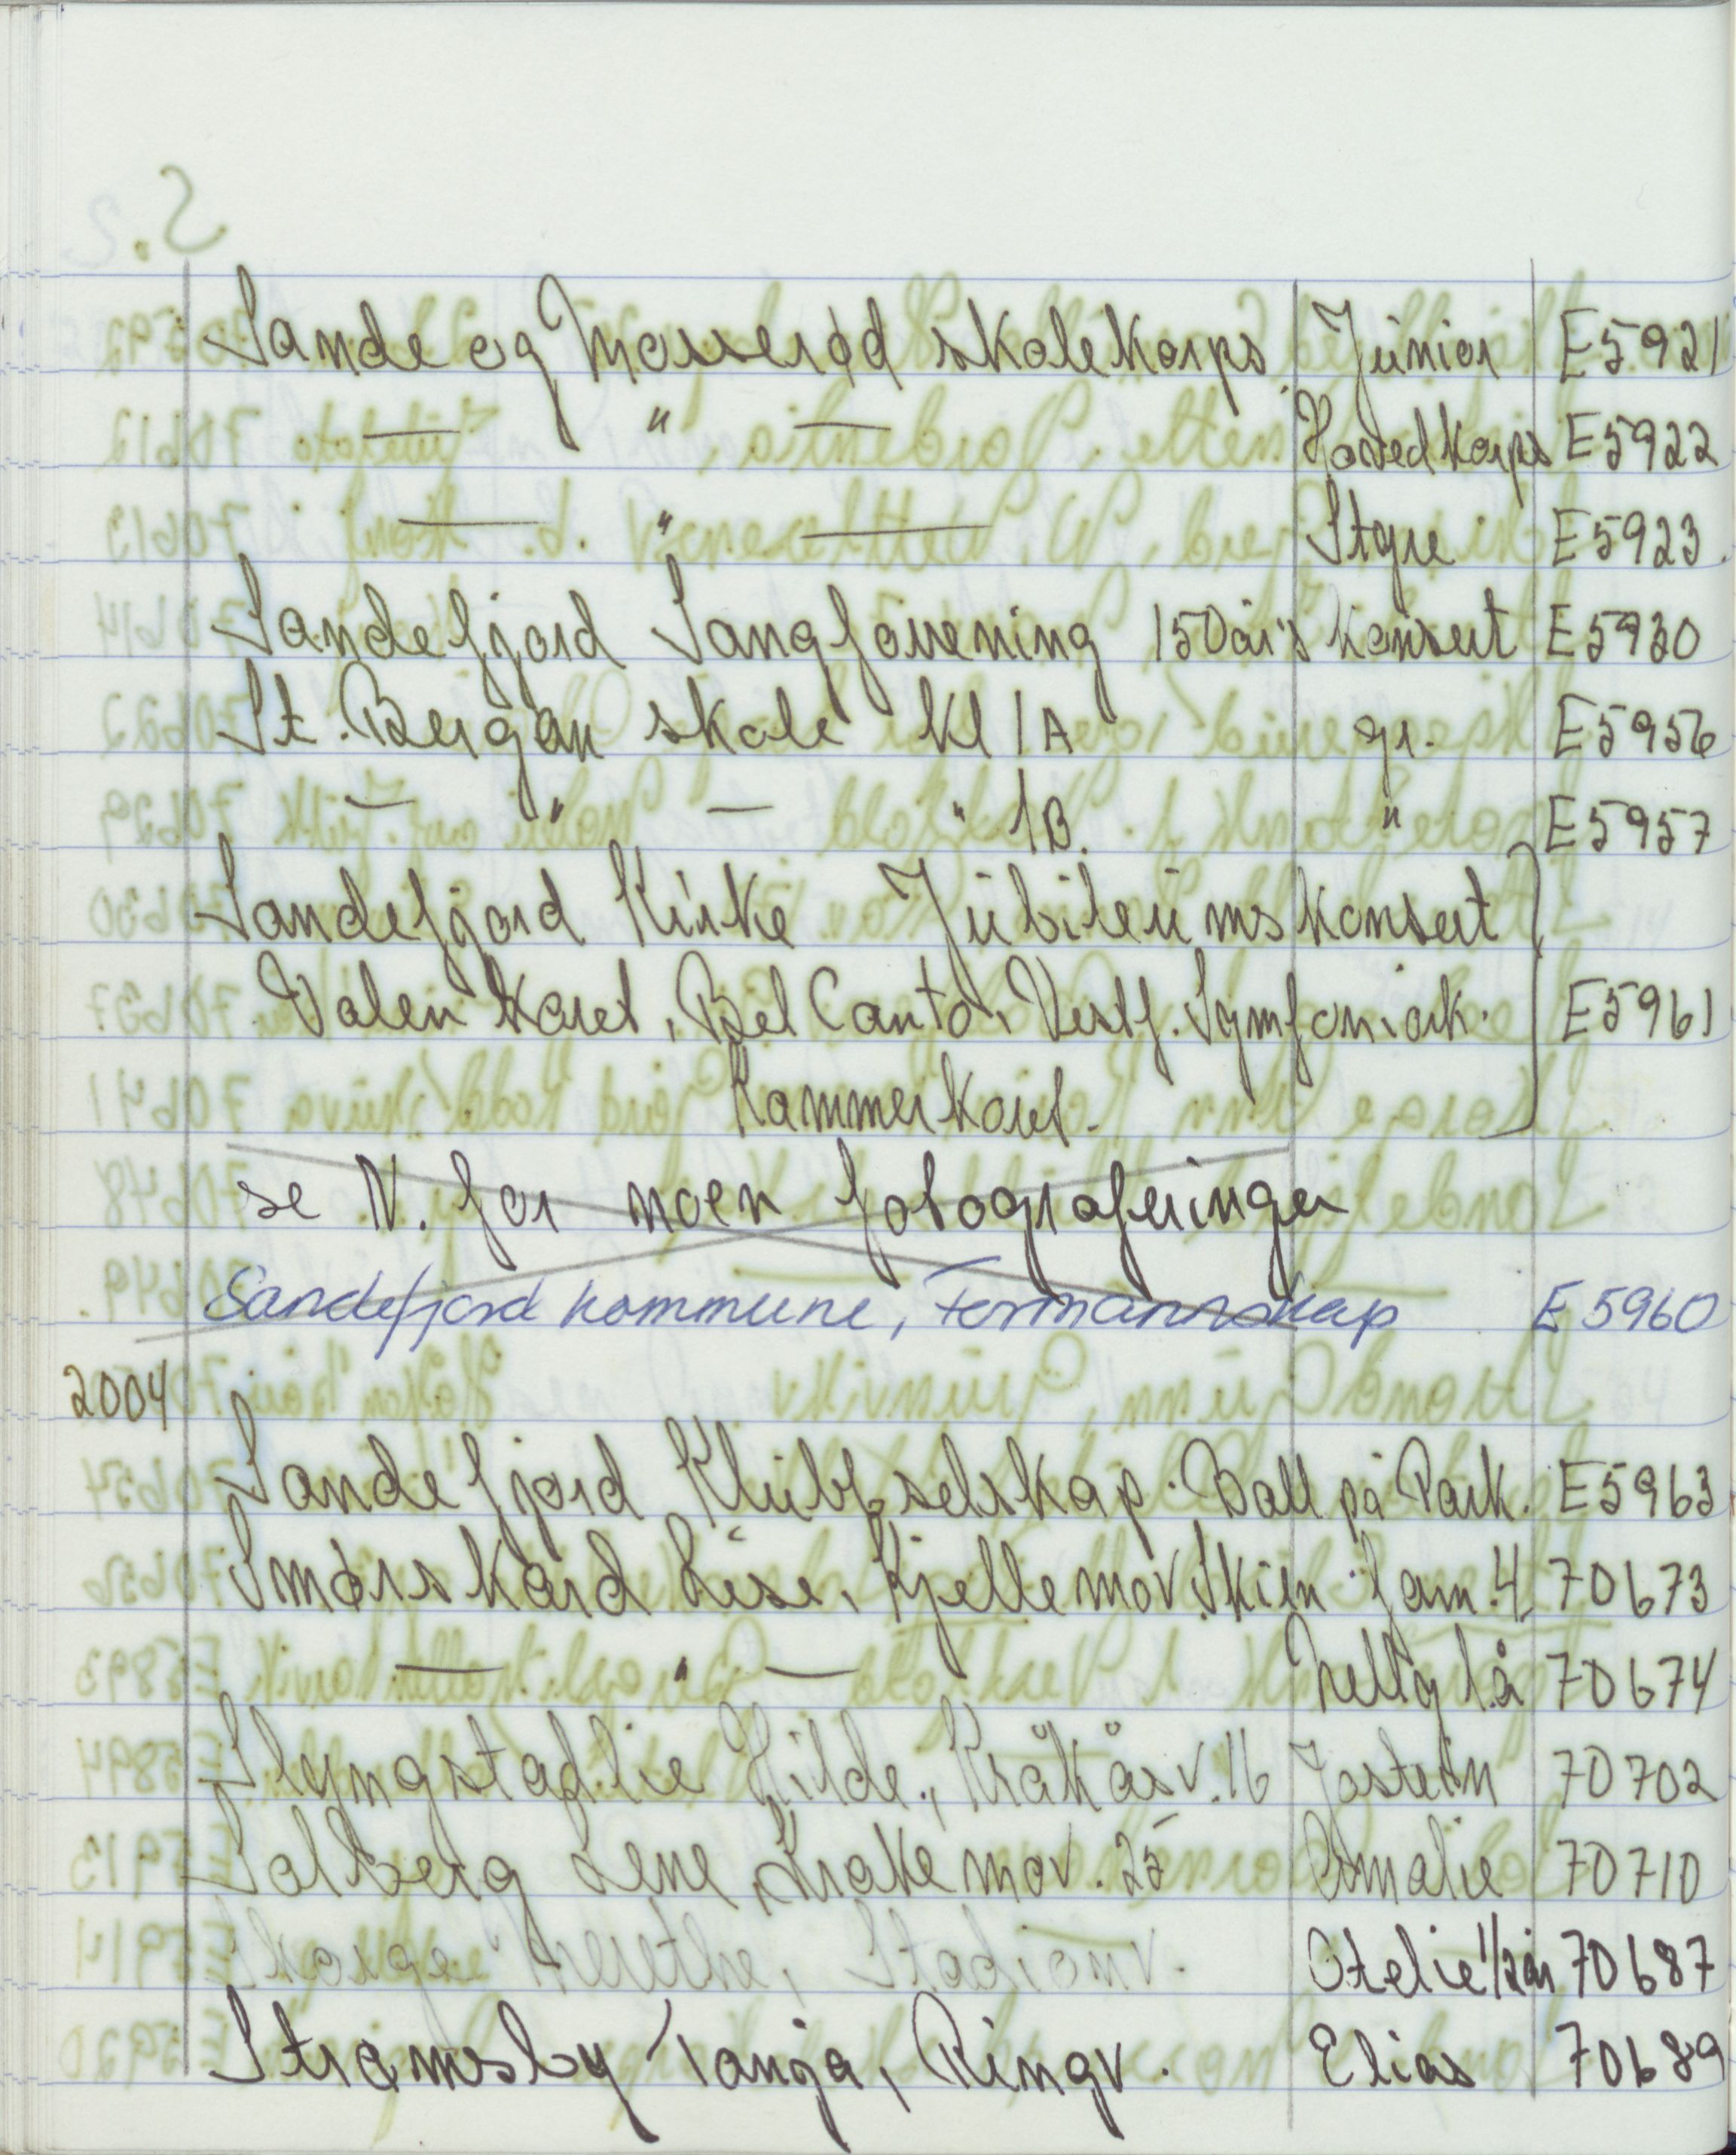 Sande og Mosserød skolekorps. Junior E5921
— " — Hovedkorps E5922
— " — Styre E5923.
Sandefjord Sangforening 150års konsert E5930
St. Bergan skole kl 1A gr. E5956
— " — " 1B. " E5957
Sandefjord Kirke Jubileumskonsert
Valen koret, Bel Canto, Vestf. Symfoniork. E5961
Kammerkoret.
se N. for noen fotograferinger
Sandefjord kommune, Formannskap E5960
2004
Sandefjord Klubbselskap. Ball på Park. E5963
Smørskard Lise, Kjellemov. Skien fam. 4 70673
— " — Nelly 1å 70674
Slyngstadlie Hilde, Kråkåsv. 16 Jostein 70702
Solberg Lene, Krakemov. 25 Amalie 70710
Skorge Merethe, Stadionv. Otelie 1/2år 70687
Strømsby Tanja, Ringv. Elias 70689